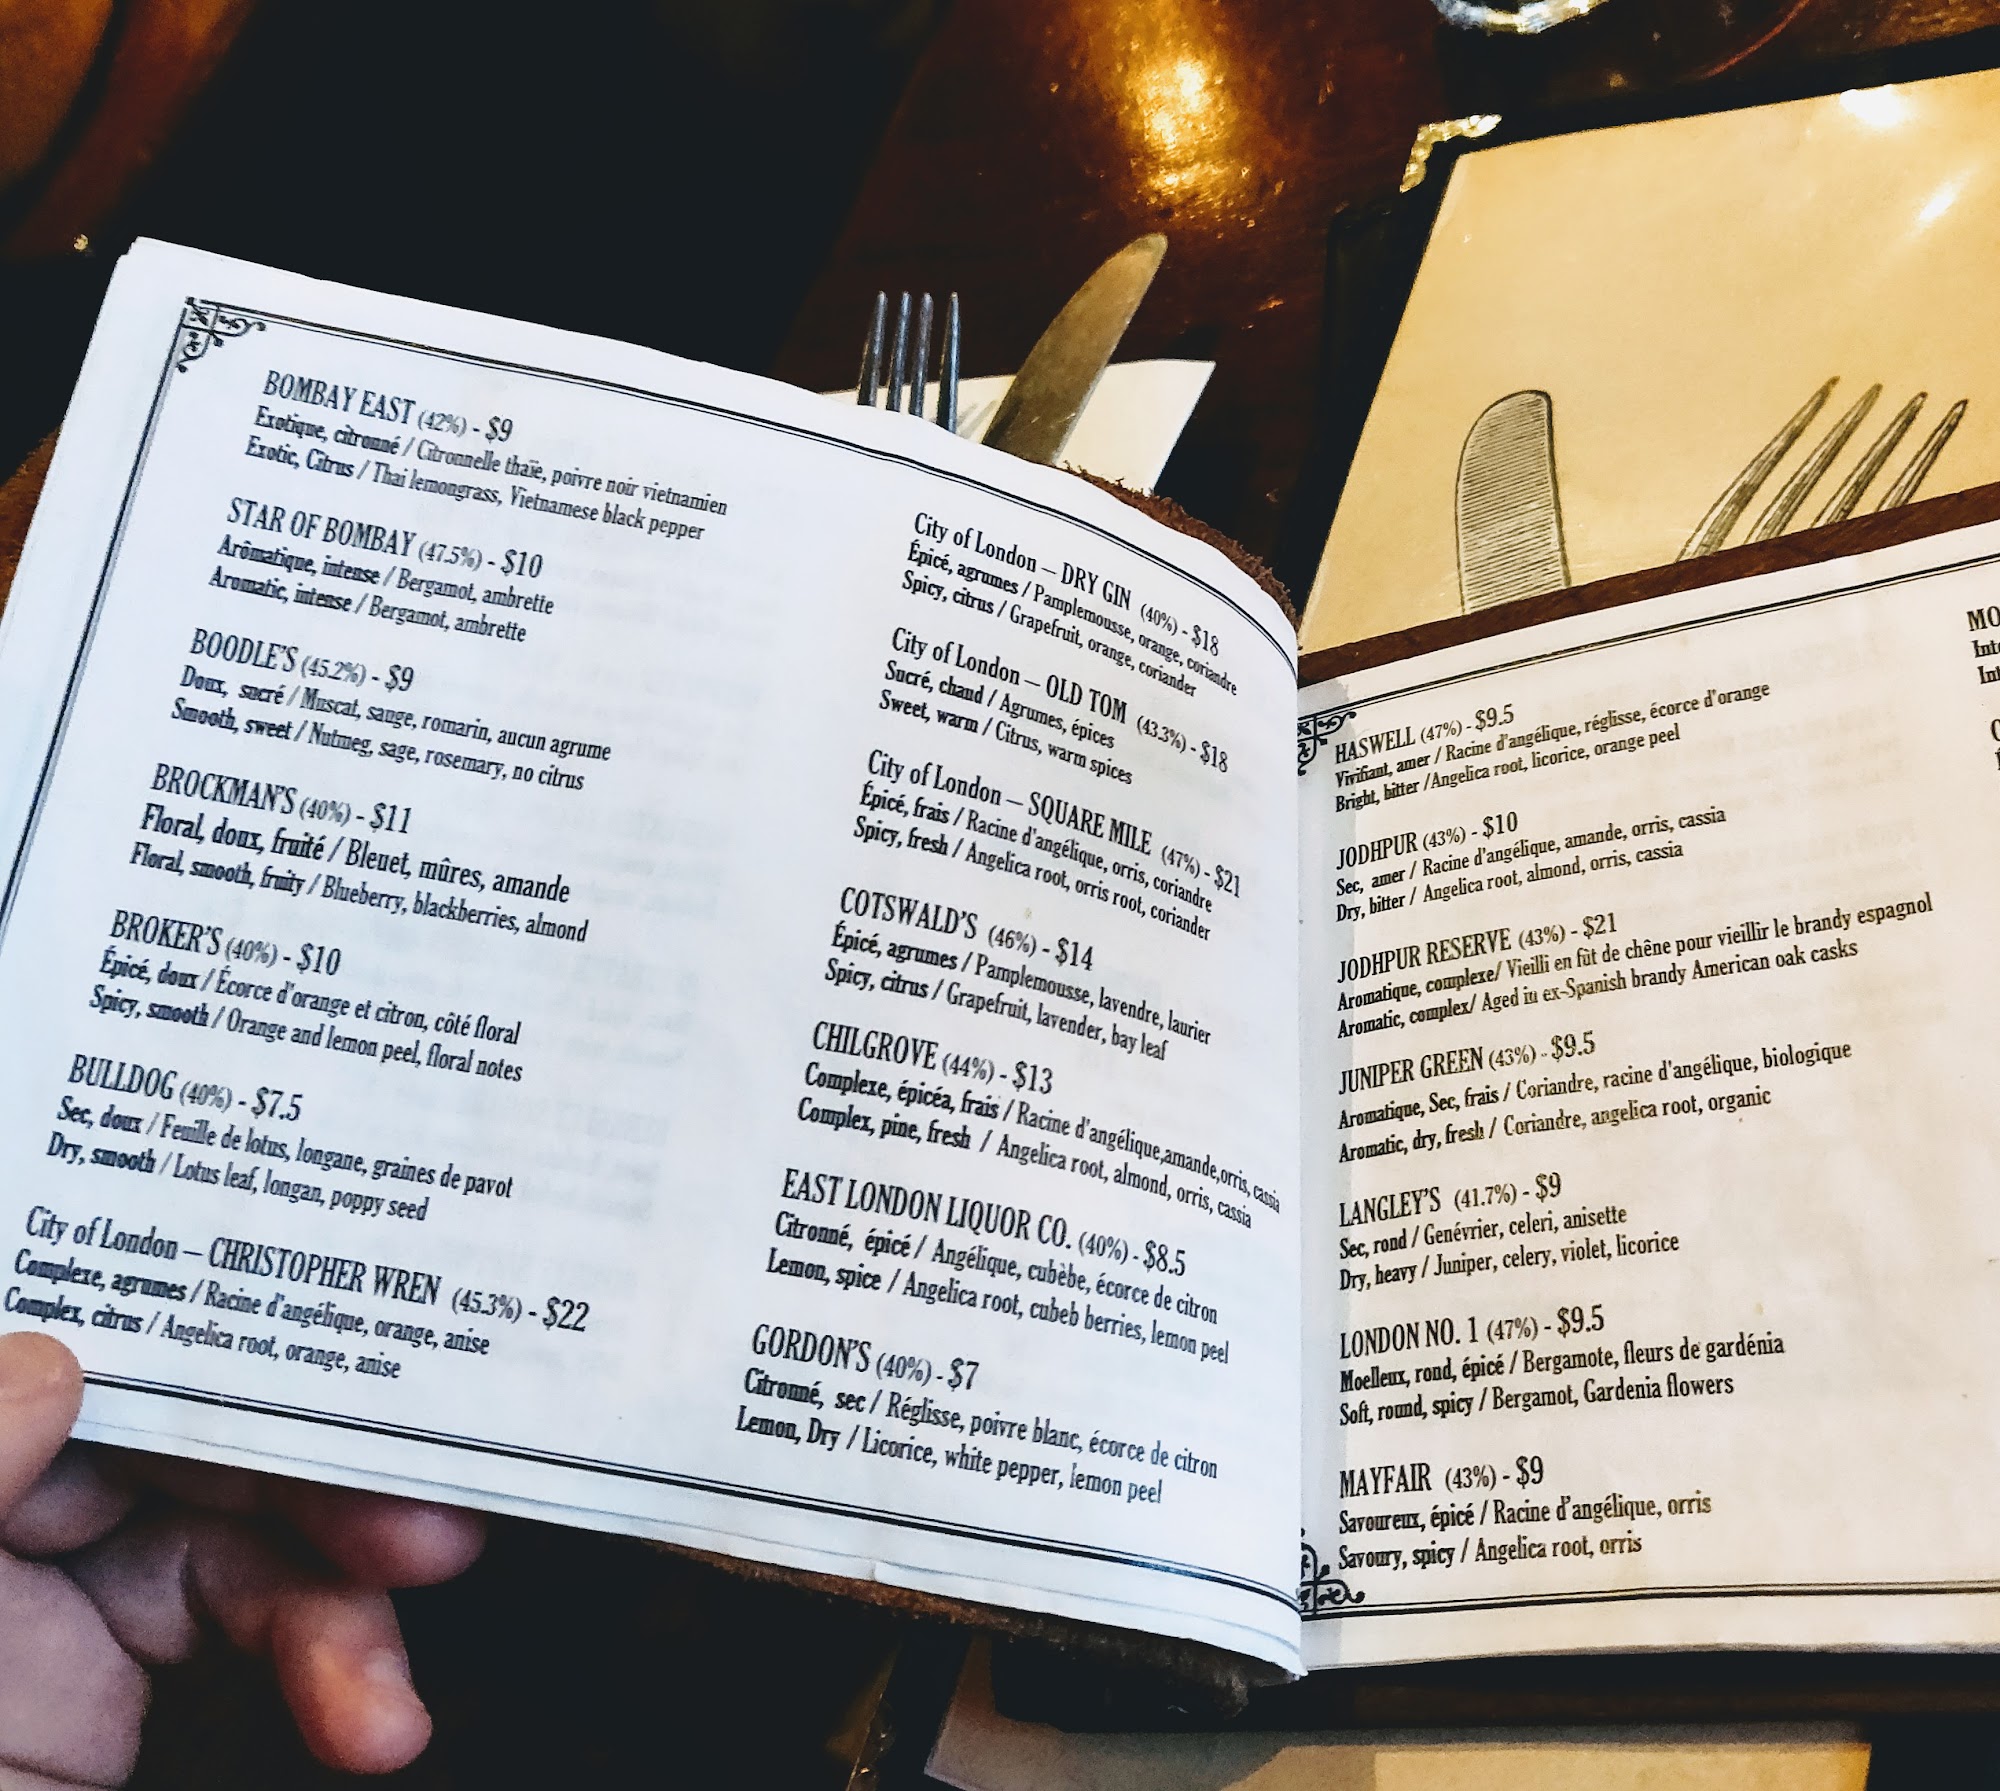 BOMBAY EAST (42%) - $9
Exotique, citronné / Citronnelle thaïe, poivre noir vietnamien
Exotic, Citrus / Thai lemongrass, Vietnamese black pepper
STAR OF BOMBAY (47.5%) - $10
Arômatique, intense / Bergamot, ambrette
Aromatic, intense / Bergamot, ambrette
BOODLE'S (45.2%) - $9
Doux, sucré / Muscat, sauge, romarin, aucun agrume
Smooth, sweet / Nutmeg, sage, rosemary, no citrus
BROCKMAN'S (40%) - $11
Floral, doux, fruité / Bleuet, mûres, amande
Floral, smooth, fruity / Blueberry, blackberries, almond
BROKER'S (40%) - $10
Épicé, doux / Écorce d'orange et citron, côté floral
Spicy, smooth / Orange and lemon peel, floral notes
BULLDOG (40%) - $7.5
Sec, doux / Feuille de lotus, longane, graines de pavot
Dry, smooth / Lotus leaf, longan, poppy seed
City of London – CHRISTOPHER WREN (45.3%) - $22
Complexe, agrumes / Racine d'angélique, orange, anise
Complex, citrus / Angelica root, orange, anise
City of London – DRY GIN (40%) - $18
Épicé, agrumes / Pamplemousse, orange, coriandre
Spicy, citrus / Grapefruit, orange, coriander
City of London – OLD TOM (43.3%) - $18
Sucré, chaud / Agrumes, épices
Sweet, warm / Citrus, warm spices
City of London – SQUARE MILE (47%) - $21
Épicé, frais / Racine d'angélique, orris, coriandre
Spicy, fresh / Angelica root, orris root, coriander
COTSWALD'S (46%) - $14
Épicé, agrumes / Pamplemousse, lavendre, laurier
Spicy, citrus / Grapefruit, lavender, bay leaf
CHILGROVE (44%) - $13
Complexe, épicéa, frais / Racine d'angélique,amande,orris, cassia
Complex, pine, fresh / Angelica root, almond, orris, cassia
EAST LONDON LIQUOR CO. (40%) - $8.5
Citronné, épicé / Angélique, cubèbe, écorce de citron
Lemon, spice / Angelica root, cubeb berries, lemon peel
GORDON'S (40%) - $7
Citronné, sec / Réglisse, poivre blanc, écorce de citron
Lemon, Dry / Licorice, white pepper, lemon peel
HASWELL (47%) - $9.5
Vivifiant, amer / Racine d'angélique, réglisse, écorce d'orange
Bright, bitter /Angelica root, licorice, orange peel
JODHPUR (43%) - $10
Sec, amer / Racine d'angélique, amande, orris, cassia
Dry, bitter / Angelica root, almond, orris, cassia
JODHPUR RESERVE (43%) - $21
Aromatique, complexe/ Vieilli en fût de chêne pour vieillir le brandy espagnol
Aromatic, complex/ Aged in ex-Spanish brandy American oak casks
JUNIPER GREEN (43%) - $9.5
Aromatique, Sec, frais / Coriandre, racine d'angélique, biologique
Aromatic, dry, fresh / Coriandre, angelica root, organic
LANGLEY'S (41.7%) - $9
Sec, rond / Genévrier, celeri, anisette
Dry, heavy / Juniper, celery, violet, licorice
LONDON NO. 1 (47%) - $9.5
Moelleux, rond, épicé / Bergamote, fleurs de gardénia
Soft, round, spicy / Bergamot, Gardenia flowers
MAYFAIR (43%) - $9
Savoureux, épicé / Racine d'angélique, orris
Savoury, spicy / Angelica root, orris
MO
Int
Int